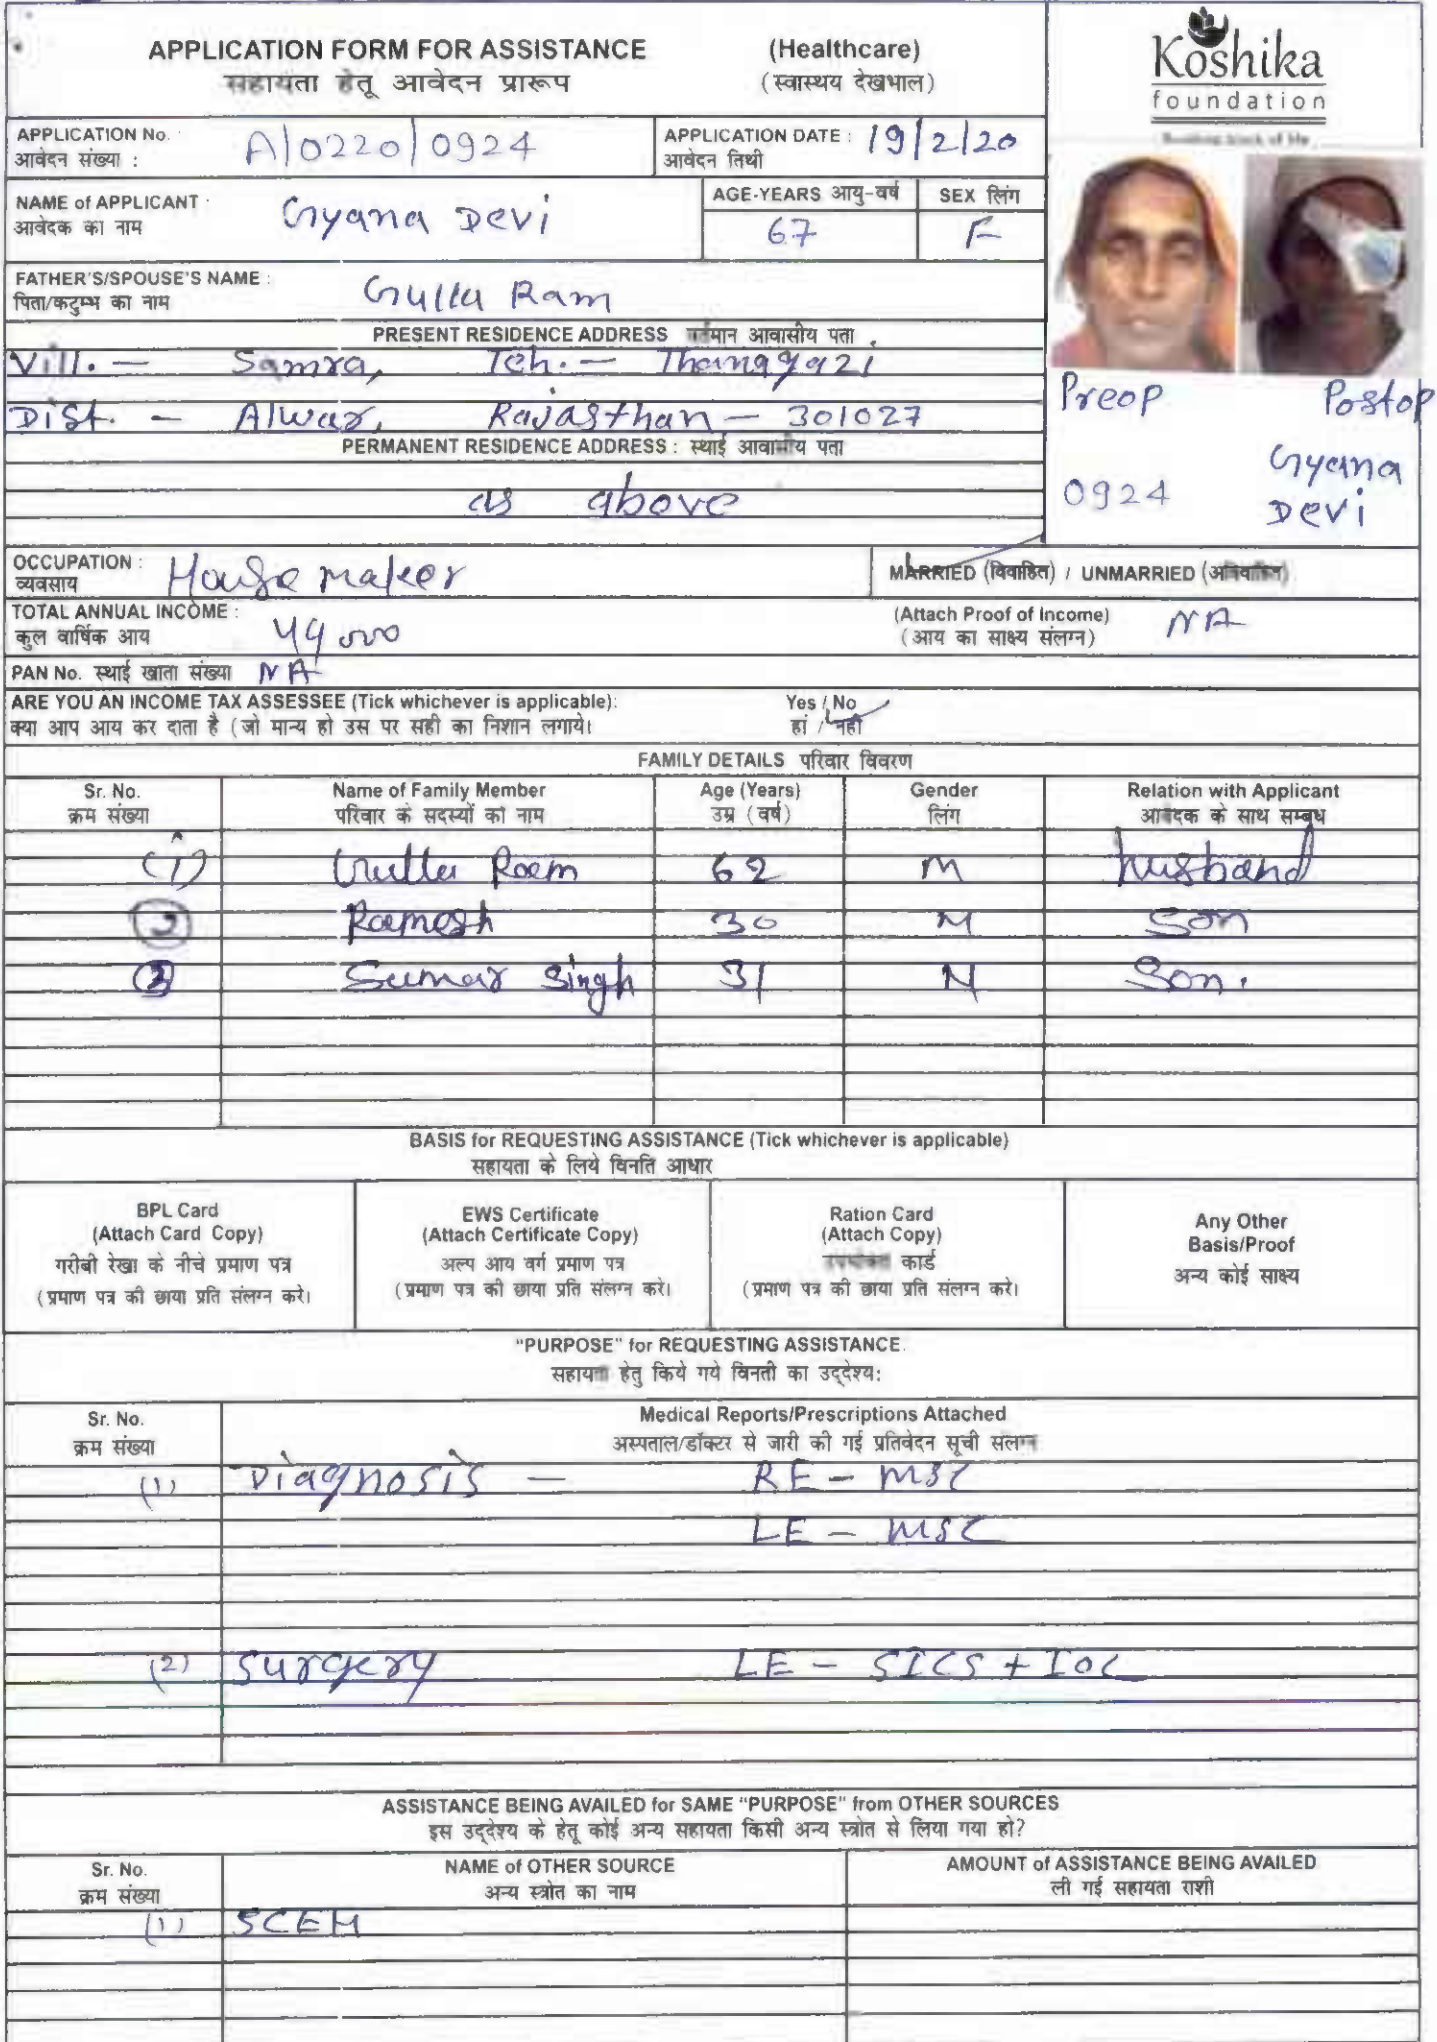 APPLICATION FORM FOR ASSISTANCE (Healthcare)
सहायता हेतू आवेदन प्रारूप (स्वास्थय देखभाल)
Koshika
foundation
APPLICATION No. :
आवेदन संख्या :
A/0220/0924
APPLICATION DATE :
आवेदन तिथी
19/2/20
NAME of APPLICANT :
आवेदक का नाम
Gyana Devi
AGE-YEARS आयु-वर्ष
67
SEX लिंग
F
FATHER'S/SPOUSE'S NAME :
पिता/कटुम्भ का नाम
Gulla Ram
PRESENT RESIDENCE ADDRESS वर्तमान आवासीय पता
Vill. - Samra, Teh. - Thanagazi
Dist. - Alwar, Rajasthan - 301027
PERMANENT RESIDENCE ADDRESS : स्थाई आवासीय पता
as above
Preop Postop
0924 Gyana
Devi
OCCUPATION :
व्यवसाय
House maker
MARRIED (विवाहित) / UNMARRIED (अविवाहित)
TOTAL ANNUAL INCOME :
कुल वार्षिक आय
49000
(Attach Proof of Income)
(आय का साक्ष्य संलग्न)
NA
PAN No. स्थाई खाता संख्या NA
ARE YOU AN INCOME TAX ASSESSEE (Tick whichever is applicable): Yes / No
क्या आप आय कर दाता है (जो मान्य हो उस पर सही का निशान लगाये। हां / नहीं
FAMILY DETAILS परिवार विवरण
Sr. No. Name of Family Member Age (Years) Gender Relation with Applicant
क्रम संख्या परिवार के सदस्यों का नाम उम्र (वर्ष) लिंग आवेदक के साथ सम्बंध
(1) Gulla Ram 62 M husband
(2) Ramesh 30 M Son
(3) Sumar Singh 31 M Son.
BASIS for REQUESTING ASSISTANCE (Tick whichever is applicable)
सहायता के लिये विनति आधार
BPL Card
(Attach Card Copy)
गरीबी रेखा के नीचे प्रमाण पत्र
(प्रमाण पत्र की छाया प्रति संलग्न करे।
EWS Certificate
(Attach Certificate Copy)
अल्प आय वर्ग प्रमाण पत्र
(प्रमाण पत्र की छाया प्रति संलग्न करे।
Ration Card
(Attach Copy)
कार्ड
(प्रमाण पत्र की छाया प्रति संलग्न करे।
Any Other
Basis/Proof
अन्य कोई साक्ष्य
"PURPOSE" for REQUESTING ASSISTANCE.
सहायता हेतु किये गये विनती का उद्देश्य:
Sr. No. Medical Reports/Prescriptions Attached
क्रम संख्या अस्पताल/डॉक्टर से जारी की गई प्रतिवेदन सूची संलग्न
(1) Diagnosis - RE - MSC
LE - MSC
(2) Surgery LE - SICS + IOL
ASSISTANCE BEING AVAILED for SAME "PURPOSE" from OTHER SOURCES
इस उद्देश्य के हेतू कोई अन्य सहायता किसी अन्य स्त्रोत से लिया गया हो?
Sr. No. NAME of OTHER SOURCE AMOUNT of ASSISTANCE BEING AVAILED
क्रम संख्या अन्य स्त्रोत का नाम ली गई सहायता राशी
(1) SCEH